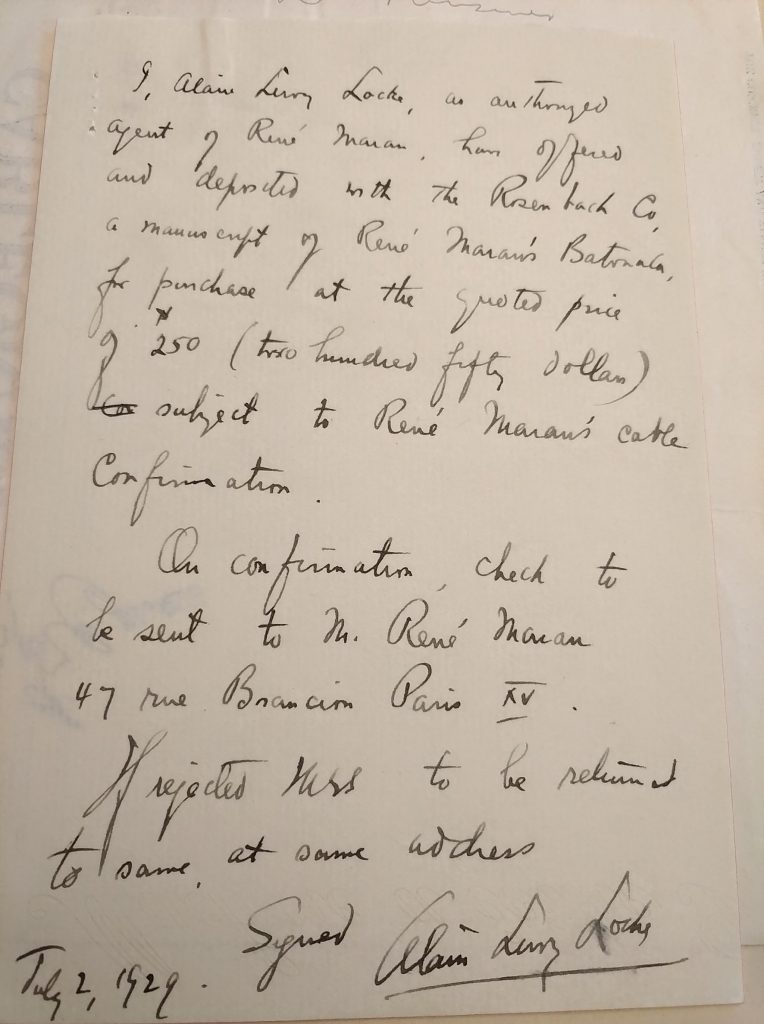 I, Alain Leroy Locke, as authorized
agent of René Maran, have offered
and deposited with the Rosenbach Co,
a manuscript of René Maran's Batouala,
for purchase at the quoted price
of $250 (two hundred fifty dollars)
subject to René Maran's cable
Confirmation.
On confirmation, check to
be sent to M. René Maran
47 rue Brancion Paris XV.
If rejected Mss to be returned
to same, at same address
Signed Alain Leroy Locke
July 2, 1929.